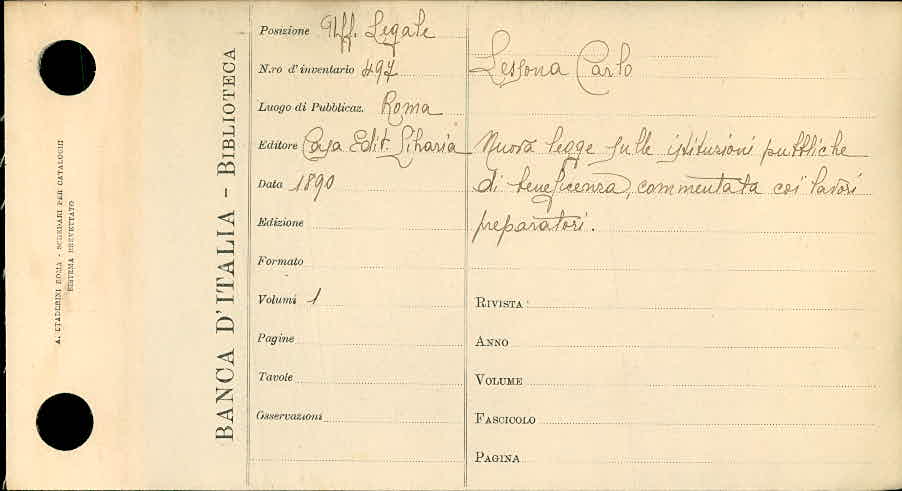 A. STADERINI ROMA - SCHEDARI PER CATALOGHI
SISTEMA BREVETTATO
BANCA D'ITALIA - BIBLIOTECA
Posizione Uff. Legale
N.ro d'inventario 497
Luogo di Pubblicaz. Roma
Editore Casa Edit. Libraria
Data 1890
Edizione
Formato
Volumi 1
Pagine
Tavole
Osservazioni
Lessona Carlo
Nuova legge sulle istituzioni pubbliche
di beneficenza, commentata coi lavori
preparatori.
RIVISTA
ANNO
VOLUME
FASCICOLO
PAGINA